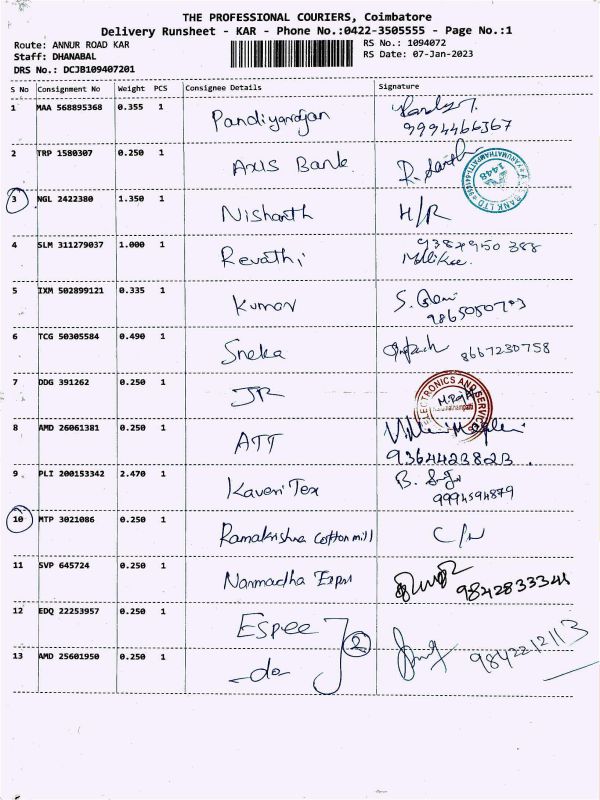 THE PROFESSIONAL COURIERS, Coimbatore
Delivery Runsheet - KAR - Phone No.:0422-3505555 - Page No.:1
Route: ANNUR ROAD KAR
RS No.: 1094072
Staff: DHANABAL
RS Date: 07-Jan-2023
DRS No.: DCJB109407201
S No Consignment No Weight PCS Consignee Details Signature
1 MAA 568895368 0.355 1 Pandiyarajan
9994466367
2 TRP 1580307 0.250 1 Axis Bank
1448
3 NGL 2422380 1.350 1 Nishanth H/R
4 SLM 311279037 1.000 1 Revathi
5 IXM 502899121 0.335 1 Kumar
6 TCG 50305584 0.490 1 Sneka 8667230758
7 DDG 391262 0.250 1 JR
ELECTRONICS AND SERVICES
8 AMD 26061381 0.250 1 ATT
9364423823.
9 PLI 200153342 2.470 1 Kaveri Tex
9994594879
10 MTP 3021086 0.250 1 Ramakrishna Cotton mill
11 SVP 645724 0.250 1 Narmadha
12 EDQ 22253957 0.250 1 Espee
2
13 AMD 25601950 0.250 1 -do- 9842212113